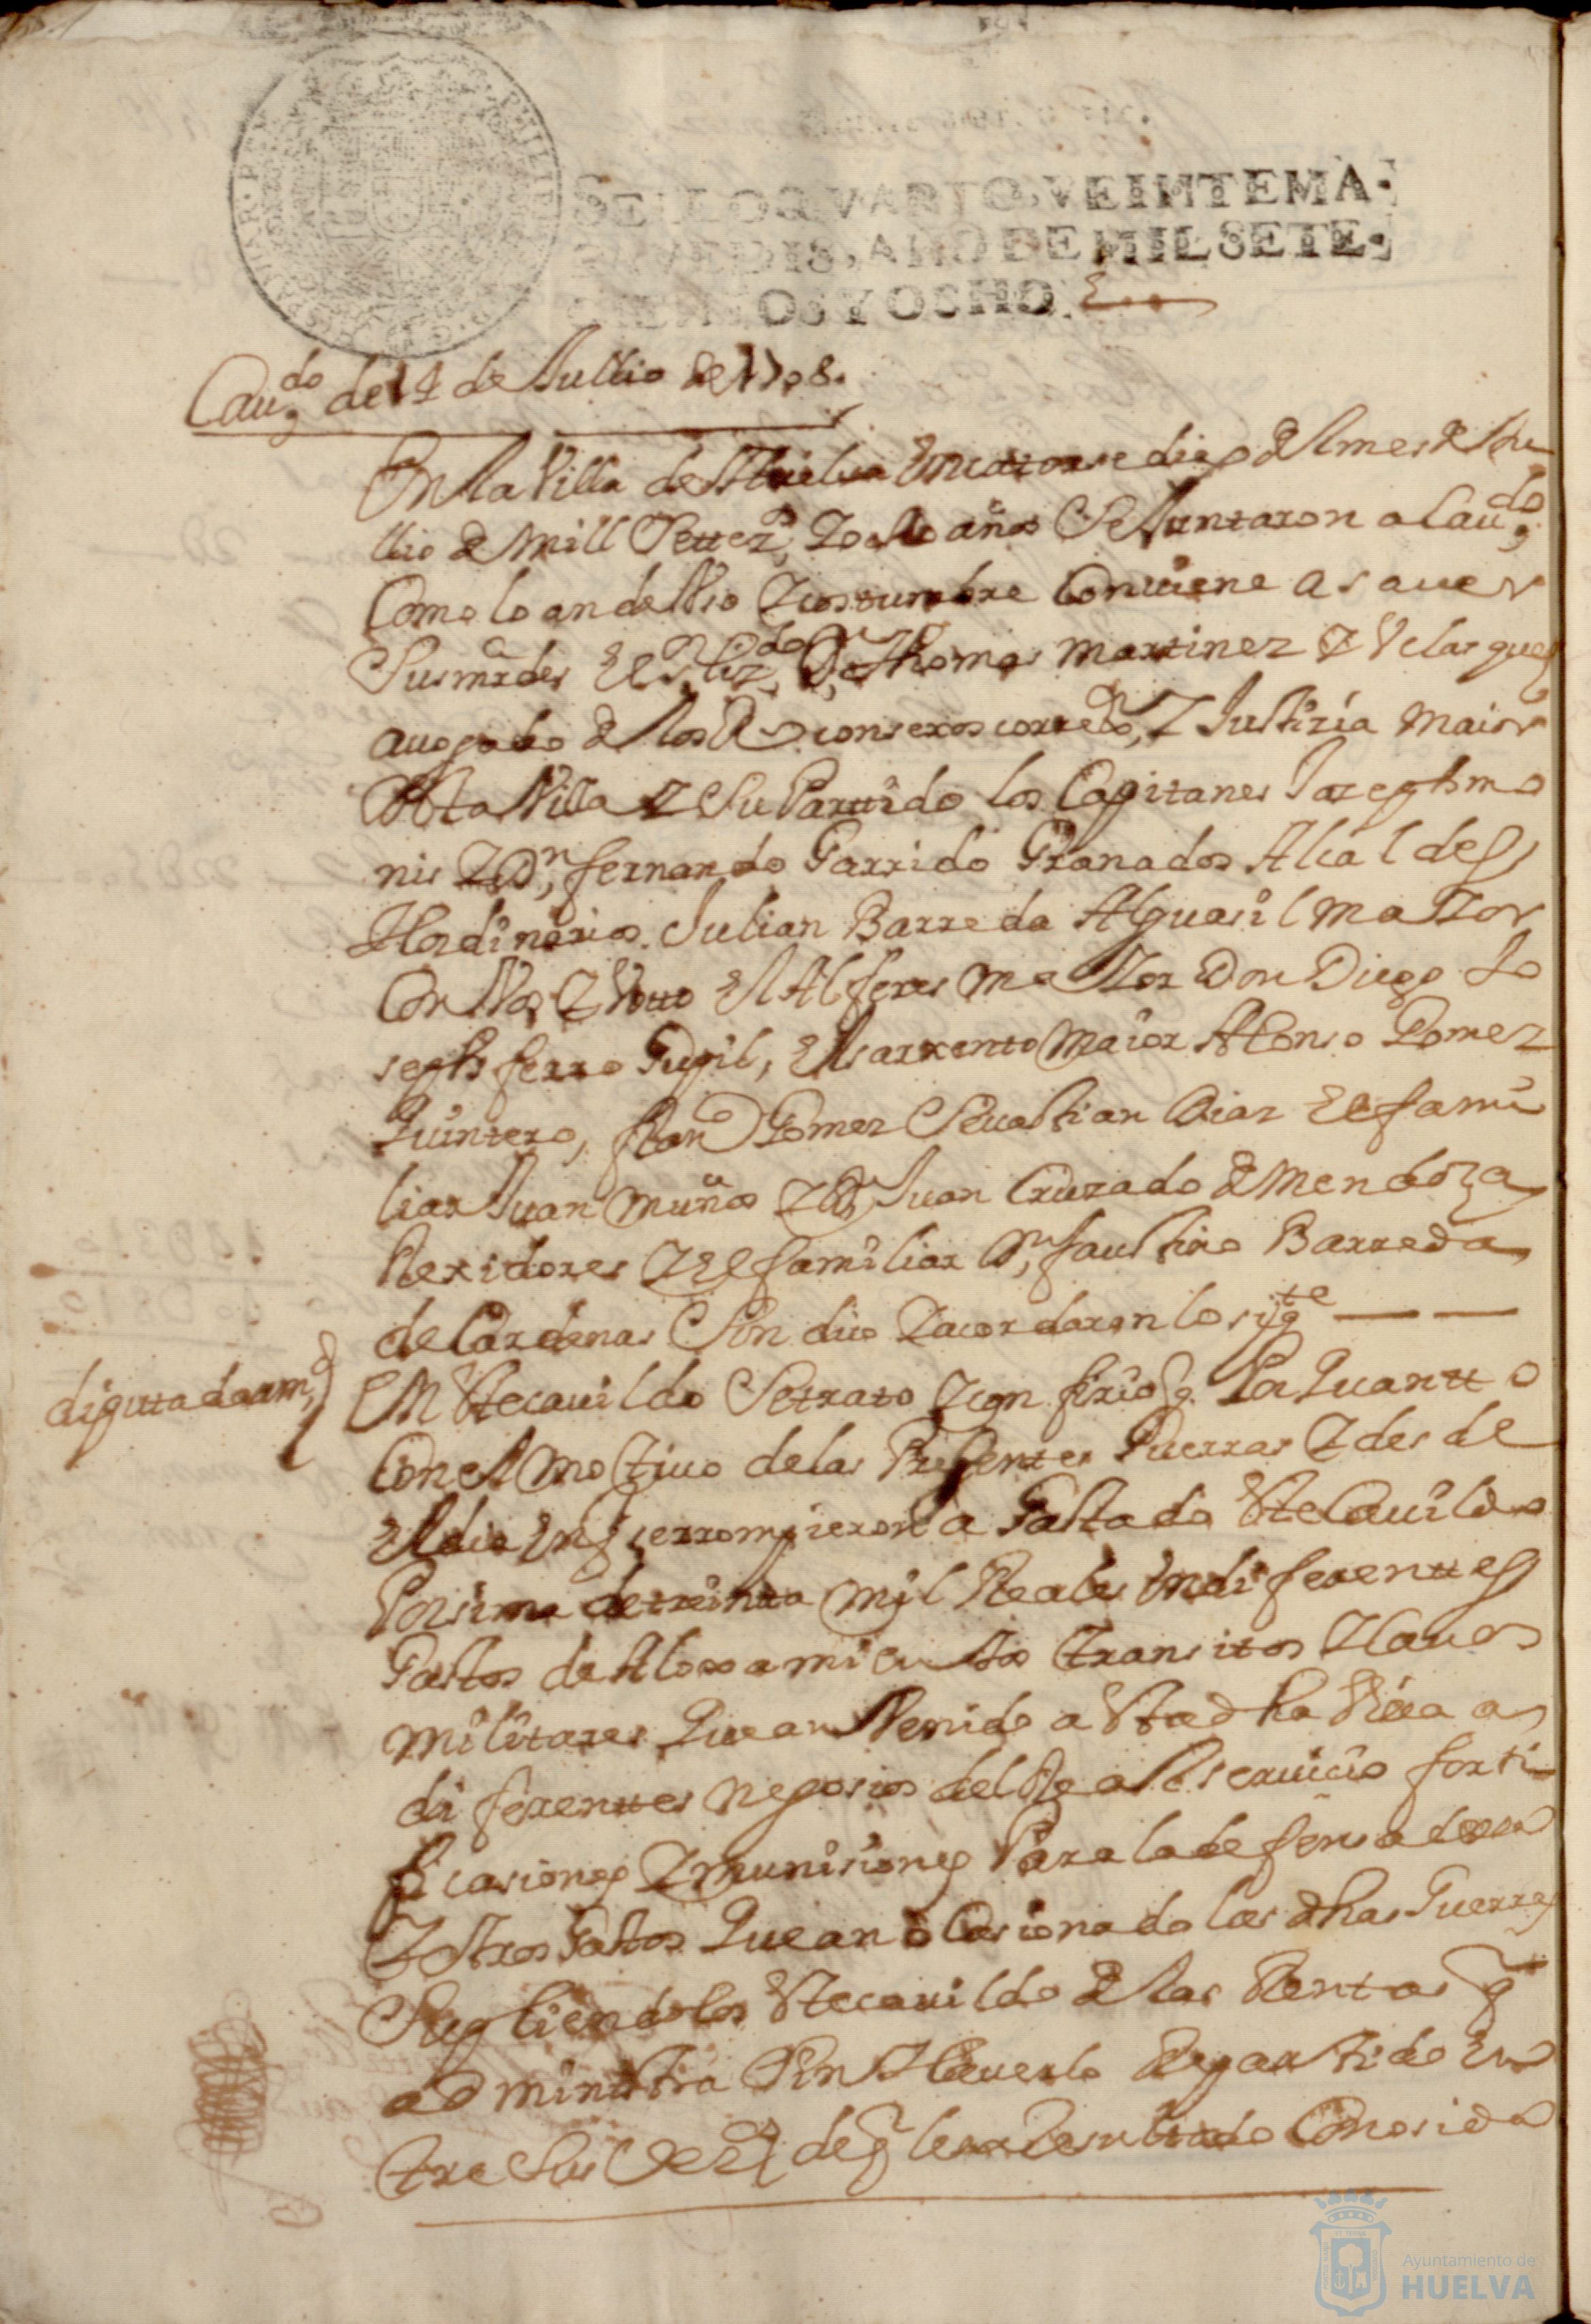 SELLO QVARTO, VEINTE MA-
RAVEDIS, AÑO DE MIL SETE-
CIENTOS Y OCHO.
Caudo. de 14 de Jullio de 1708.
En la Villa de Huelua en catorse dias del mes de Ju
llio de mill Settezs. y ocho años Se Juntaron a Caudo.
Como lo an de Uso y costumbre Conuiene a sauer
Sus mrdes el Sr. Lizdo. Dn. Thomas Martinez y Velasques
auogado de los Rs consexos corredor, y Justizia maior
desta Villa y Su Partido los Capitanes Joseph mo
nis y Dn. fernando Garrido Granados Alcaldes
Hordinarios. Julian Barreda Alguasil maior
Con Vos y Votto el Alferes maior Don Diego Jo
seph ferro Pugil, el sarxento maior Alonso Gomez
Quintero, fran Gomez Seuastian Dias el fami
liar Juan muños y Dn. Juan Cruzado de Mendoza
Rexidores y el familiar Dn. faustino Barreda
de Cardenas Sindico y acordaron lo sigte
diputado a m,
En Este cauildo Se trato y confirio q. Por Quantto
Con el motiuo de las Presentes Guerras y desde
el dia en q se rrompieron a Gastado Este Cauildo
Por sima de treintta mil Reales en diferenttes
Gastos de Aloxamientos transitos y Cauos
militares Que an Venido a Esta dha Villa a
diferenttes negosios del Real Seruicio forti
ficasiones y munisiones Para la defensa della
y otros Gastos Que an oCasionado las dhas Guerras
Supliendolos Este cauildo de las Rentas q
administra Sin Hauerlo Repartido en
tre Sus Vezs de q le a Resultado Conosida
Ayuntamiento de
HUELVA